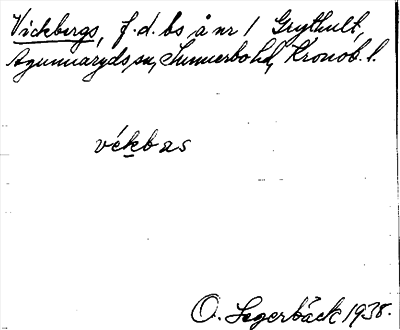 Vickbergs, f.d. bs å nr 1 Grythult,
Agunnaryds sn, Sunnerbo hd, Kronob. l.
vékbas
O. Segerbäck 1938.